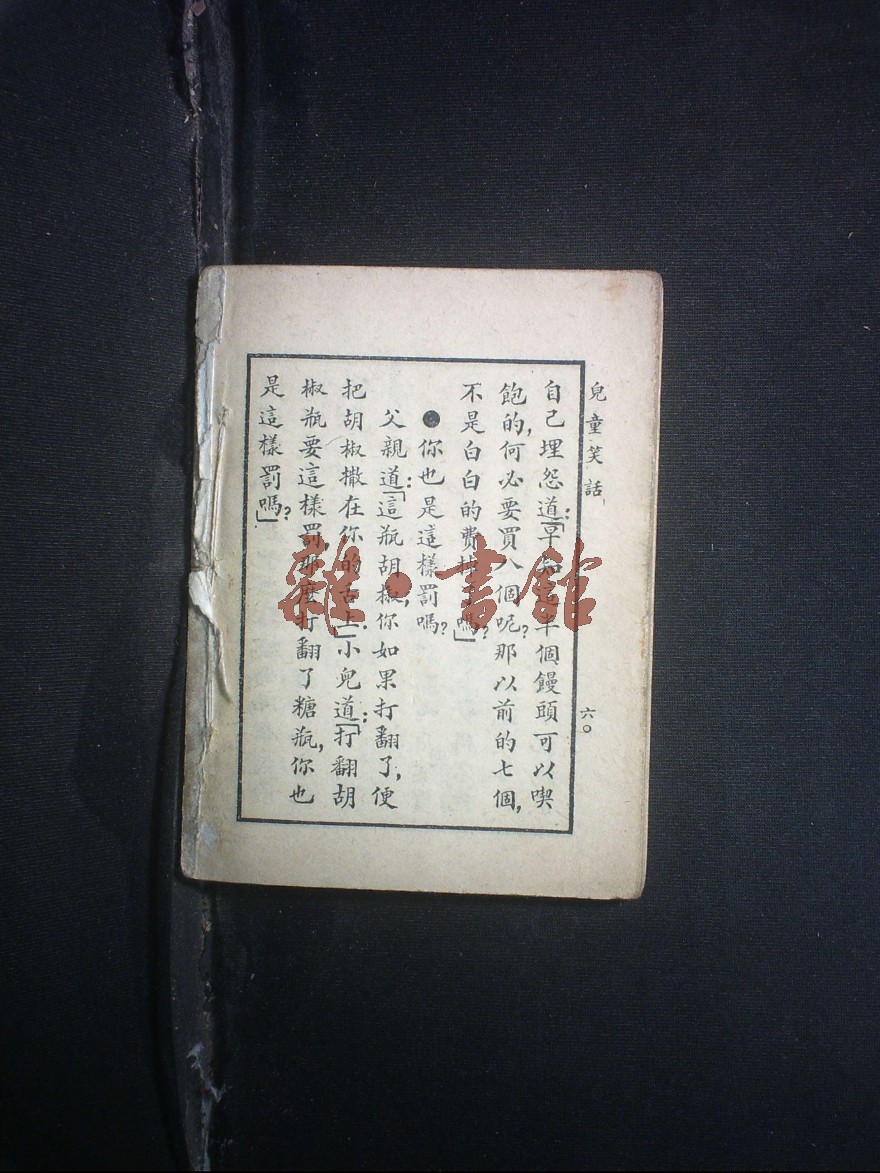 兒童笑話
六〇
自己埋怨道:「早知這半個饅頭可以喫
飽的,何必要買八個呢?那以前的七個,
不是白白的費掉嗎?」
●你也是這樣罰嗎?
父親道:「這瓶胡椒,你如果打翻了,便
把胡椒撒在你的舌上.」小兒道:「打翻胡
椒瓶要這樣罰,那麼打翻了糖瓶,你也
是這樣罰嗎?」
雜·書館